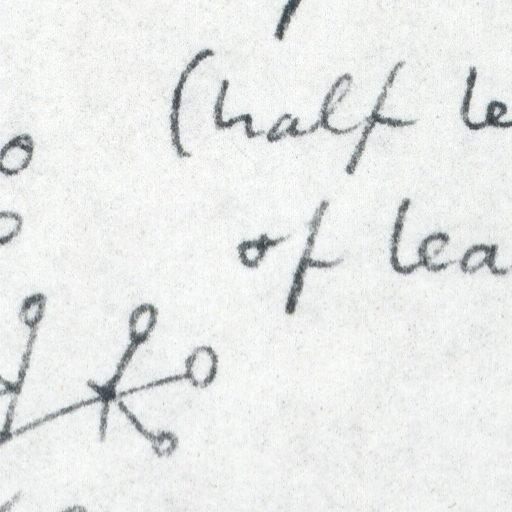 (half le
of lea